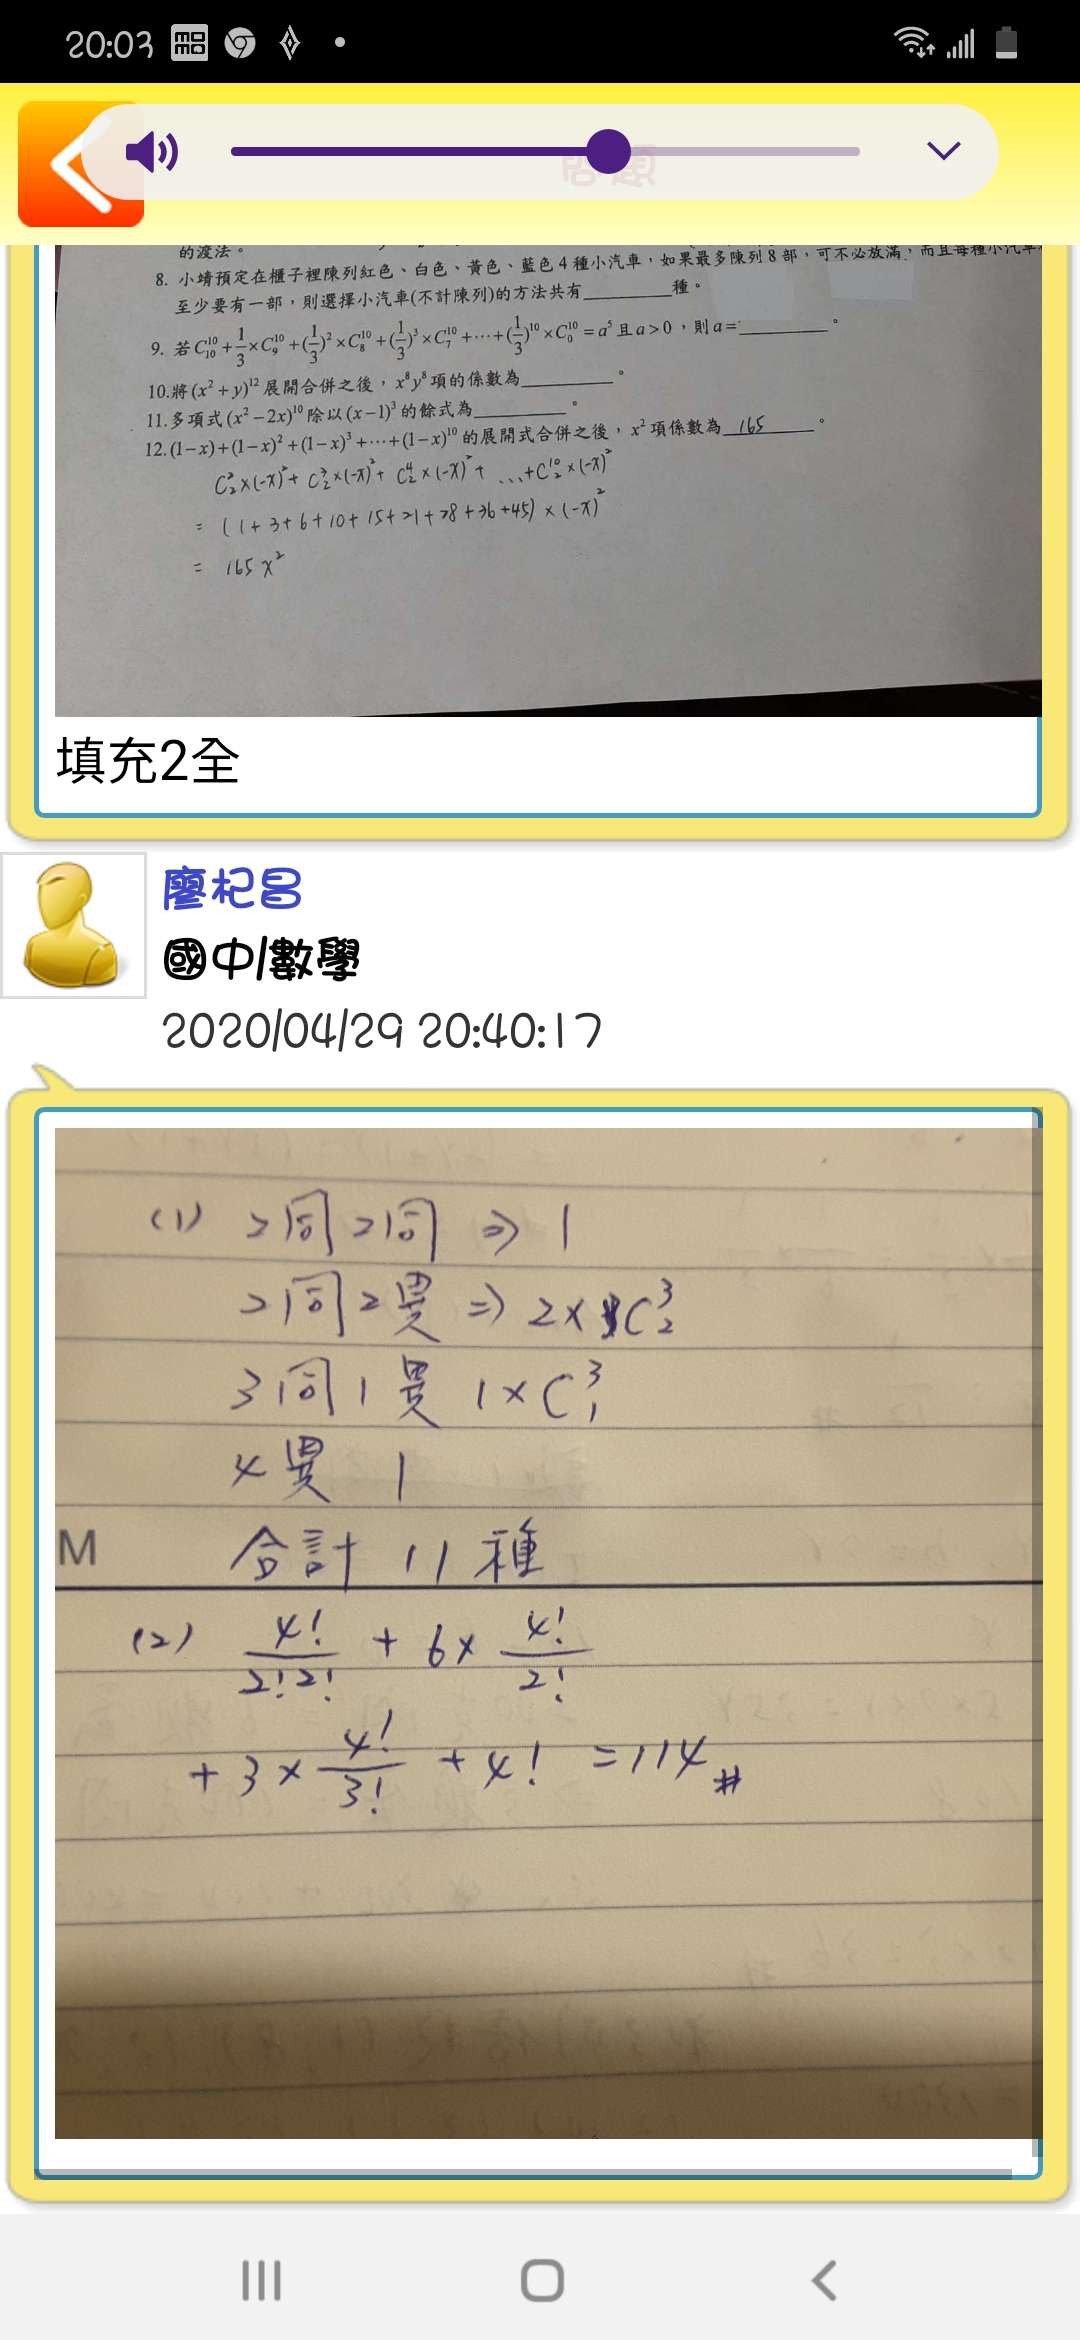 20:03
問題
的渡法。
8. 小靖預定在櫃子裡陳列紅色、白色、黃色、藍色4種小汽車,如果最多陳列8部,可不必放滿,而且每種小汽車
至少要有一部,則選擇小汽車(不計陳列)的方法共有________種。
9. 若 C₁₀¹⁰ + 1/3 × C₉¹⁰ + (1/3)² × C₈¹⁰ + (1/3)³ × C₇¹⁰ + ⋯ + (1/3)¹⁰ × C₀¹⁰ = a⁵ 且 a > 0,則 a = ________。
10. 將 (x² + y)¹² 展開合併之後,x⁸y⁸ 項的係數為________。
11. 多項式 (x² − 2x)¹⁰ 除以 (x − 1)³ 的餘式為________。
12. (1−x) + (1−x)² + (1−x)³ + ⋯ + (1−x)¹⁰ 的展開式合併之後,x² 項係數為 165 。
C₂² × (−x)² + C₂³ × (−x)² + C₂⁴ × (−x)² + ... + C₂¹⁰ × (−x)²
= (1+3+6+10+15+21+28+36+45) × (−x)²
= 165 x²
填充2全
廖杞昌
國中/數學
2020/04/29 20:40:17
(1) 2同2同 ⇒ 1
2同2異 ⇒ 2 × C₂³
3同1異 1 × C₁³
4異 1
合計 11 種
M
(2) 4!/2!2! + 6 × 4!/2!
+ 3 × 4!/3! + 4! = 114 #